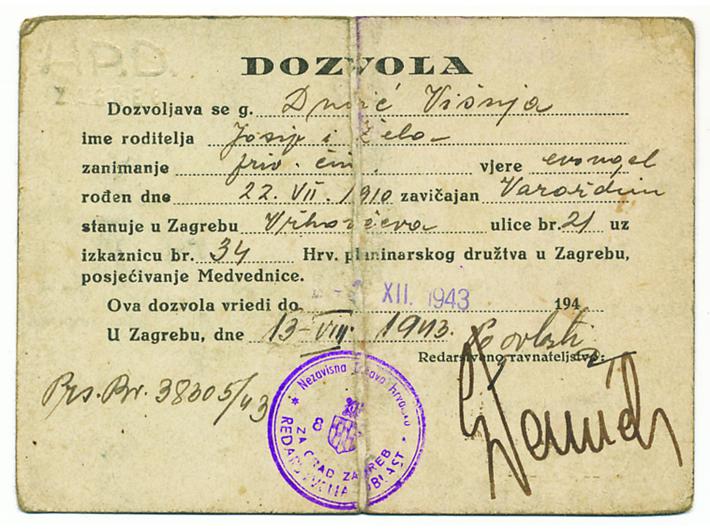 H.P.D.
DOZVOLA
Dozvoljava se g. Višnja
ime roditelja Josip i
zanimanje priv. čin. vjere evangel
rođen dne 22. VII. 1910 zavičajan Varaždin
stanuje u Zagrebu ulice br. 21 uz
izkaznicu br. 34 Hrv. planinarskog družtva u Zagrebu,
posjećivanje Medvednice.
Ova dozvola vriedi do XII. 1943 194
U Zagrebu, dne 13-VIII. 1943. Po ovlasti
Redarstveno ravnateljstvo:
Prs. Br. 38305/43
Nezavisna Država Hrvatska
8
ZA GRAD ZAGREB
REDARSTVENA OBLAST